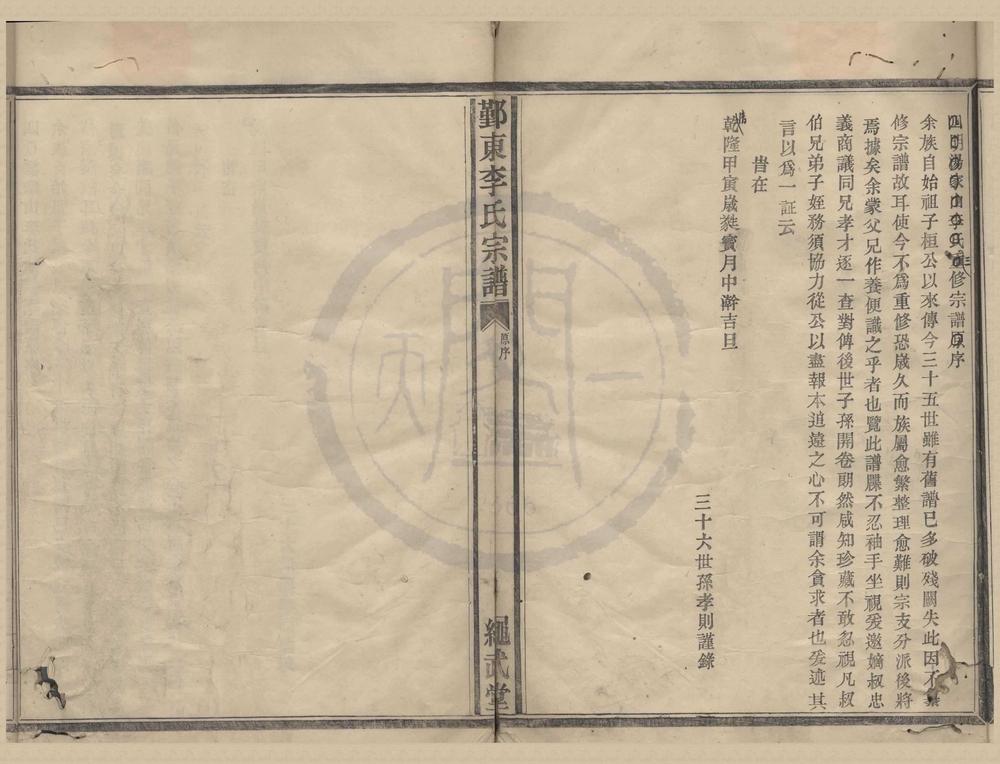 四明湯家山李氏三重修宗譜原序
余族自始祖子桓公以來傳今三十五世雖有舊譜已多破殘闕失此因不
修宗譜故耳使今不爲重修恐歲久而族屬愈繁整理愈難則宗支分派後將
焉據矣余蒙父兄作養便識之乎者也覽此譜牒不忍袖手坐視爰邀嫡叔忠
義商議同兄孝才逐一查對俾後世子孫開卷朗然咸知珍藏不敢忽視凡叔
伯兄弟子姪務須協力從公以盡報本追遠之心不可謂余貪求者也爰述其
言以爲一証云
旹在
乾隆甲寅歲蕤賓月中澣吉旦
三十六世孫孝則謹錄
鄞東李氏宗譜
原序
繩武堂